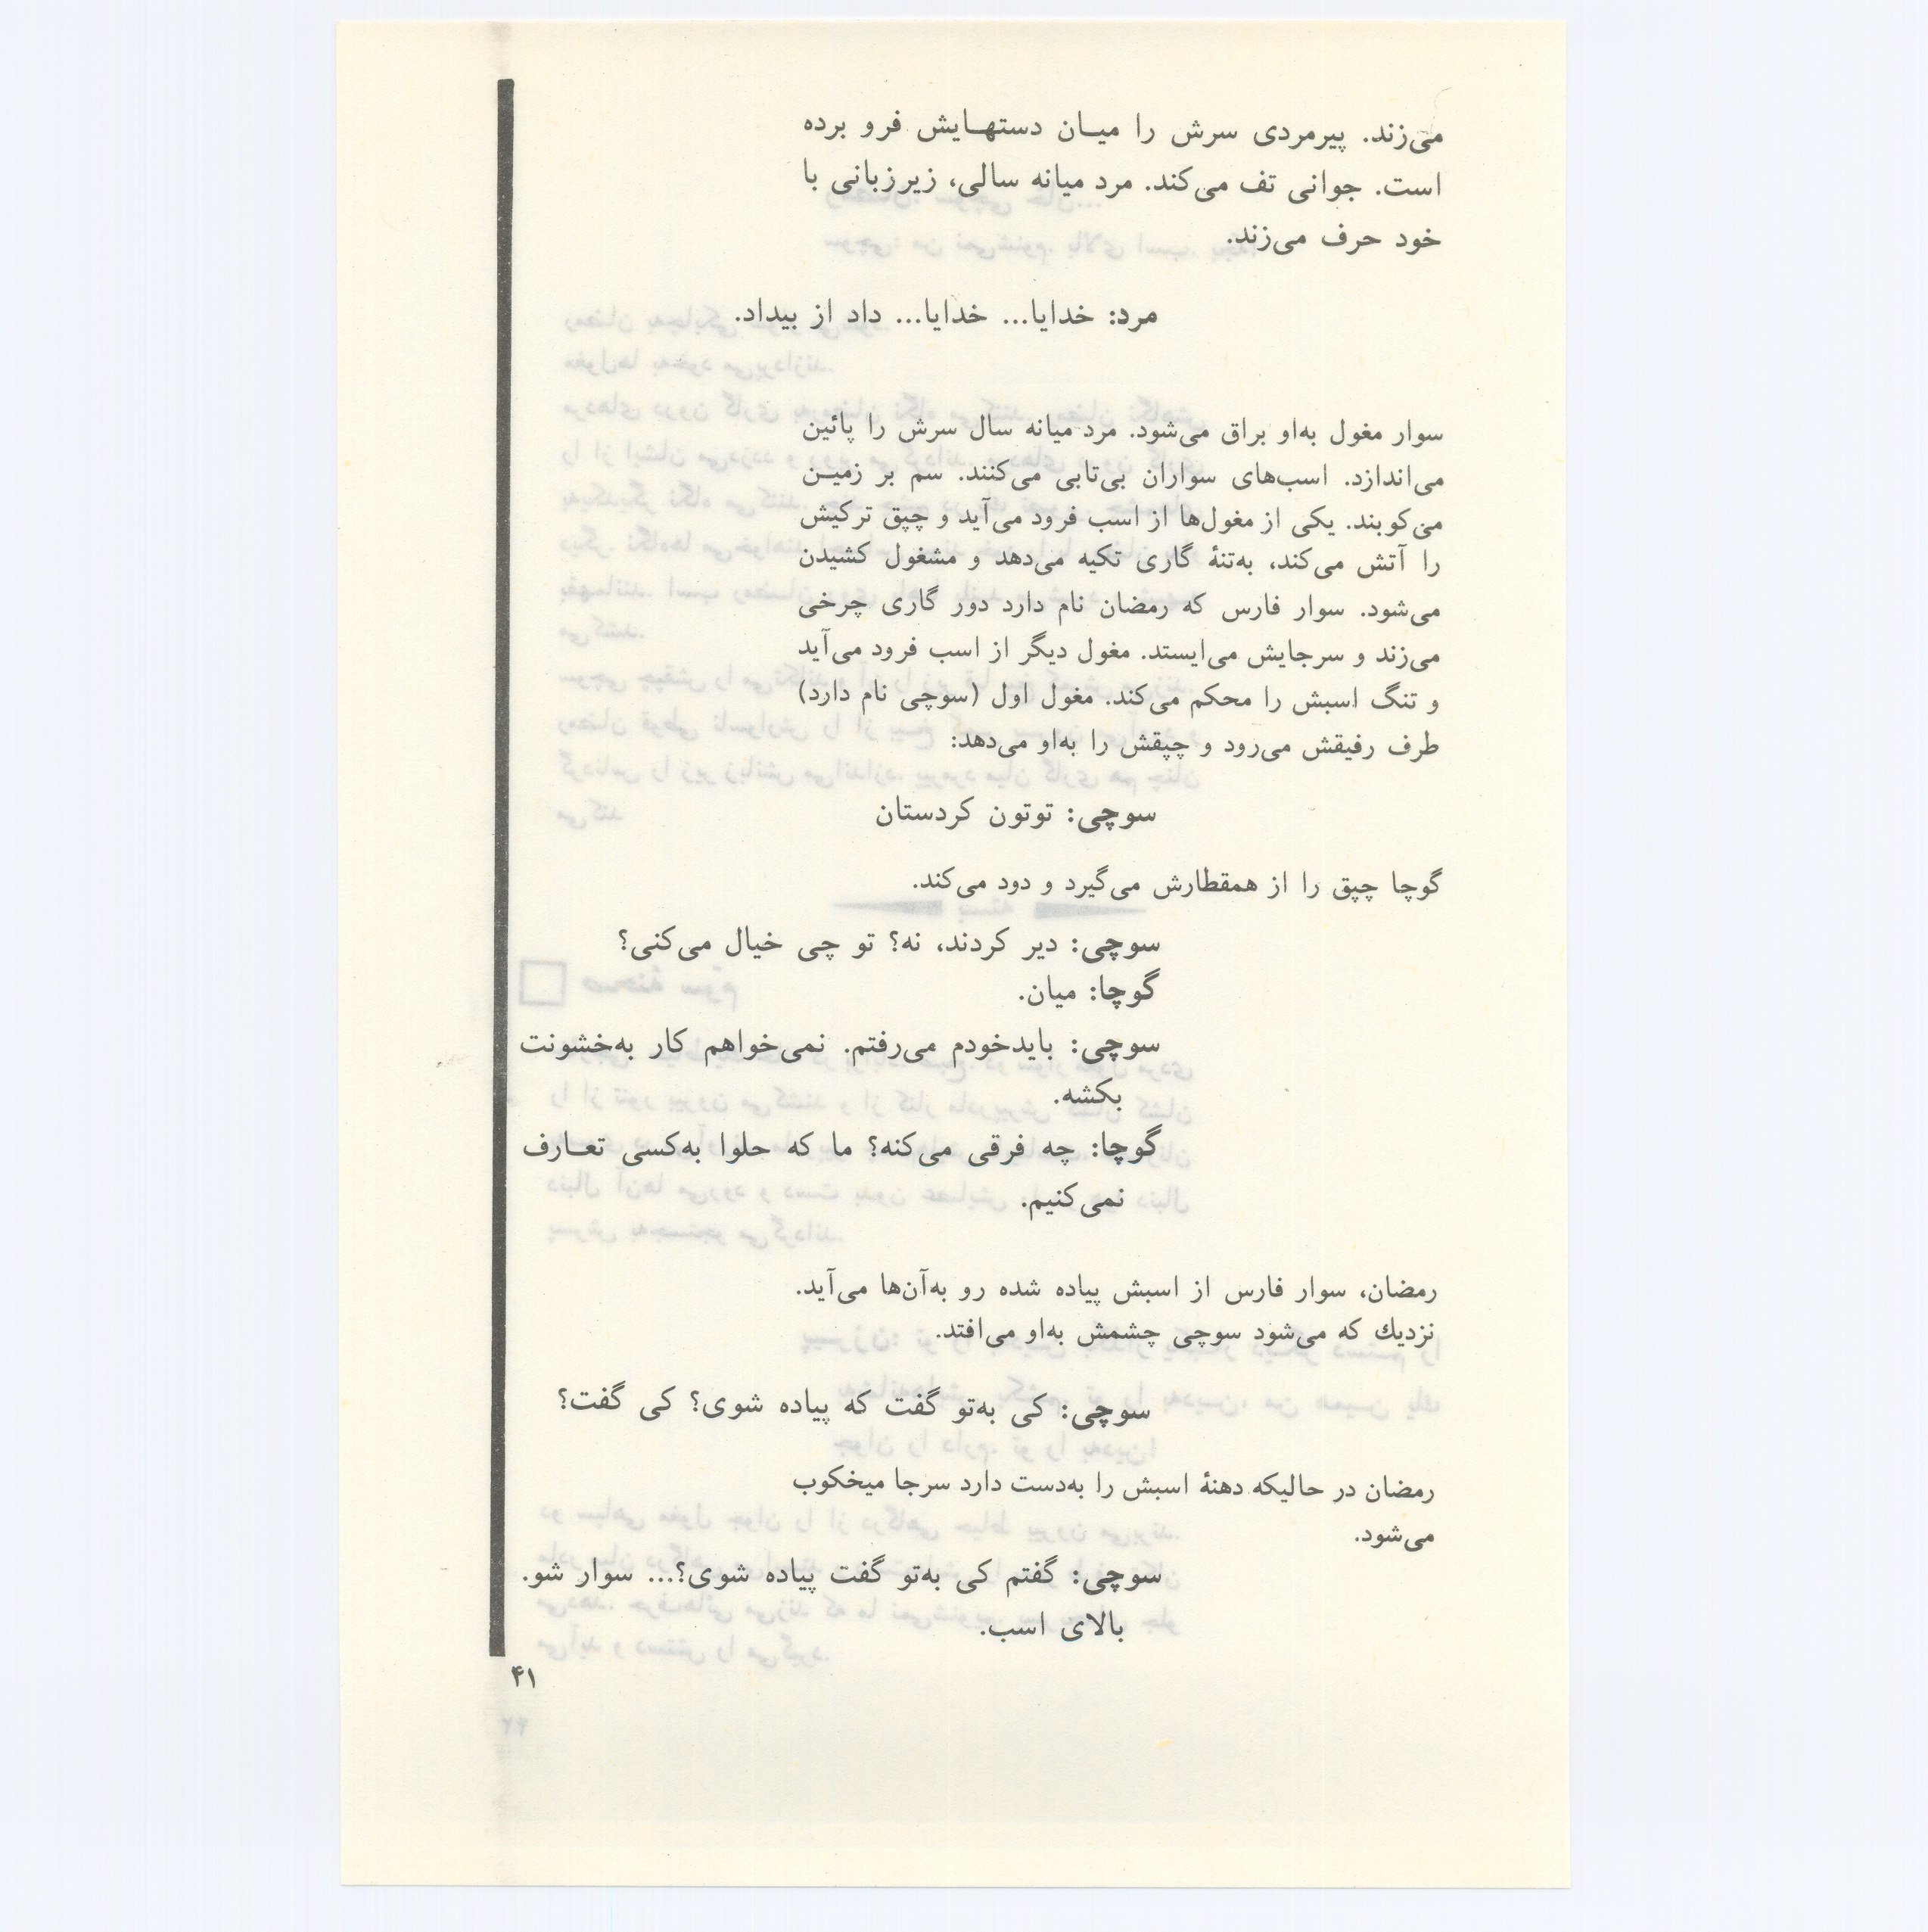 می‌زند. پیرمردی سرش را میـان دستهـایش فرو برده
است. جوانی تف می‌کند. مرد میانه سالی، زیرزبانی با
خود حرف می‌زند.
مرد: خدایا... خدایا... داد از بیداد.
سوار مغول به‌او براق می‌شود. مرد میانه سال سرش را پائین
می‌اندازد. اسب‌های سواران بی‌تابی می‌کنند. سم بر زمیـن
می‌کوبند. یکی از مغول‌ها از اسب فرود می‌آید و چپق ترکیش
را آتش می‌کند، به‌تنهٔ گاری تکیه می‌دهد و مشغول کشیدن
می‌شود. سوار فارس که رمضان نام دارد دور گاری چرخی
می‌زند و سرجایش می‌ایستد. مغول دیگر از اسب فرود می‌آید
و تنگ اسبش را محکم می‌کند. مغول اول (سوچی نام دارد)
طرف رفیقش می‌رود و چپقش را به‌او می‌دهد:
سوچی: توتون کردستان
گوچا چپق را از همقطارش می‌گیرد و دود می‌کند.
سوچی: دیر کردند، نه؟ تو چی خیال می‌کنی؟
گوچا: میان.
سوچی: بایدخودم می‌رفتم. نمی‌خواهم کار به‌خشونت
بکشه.
گوچا: چه فرقی می‌کنه؟ ما که حلوا به‌کسی تعـارف
نمی‌کنیم.
رمضان، سوار فارس از اسبش پیاده شده رو به‌آن‌ها می‌آید.
نزدیك که می‌شود سوچی چشمش به‌او می‌افتد.
سوچی: کی به‌تو گفت که پیاده شوی؟ کی گفت؟
رمضان در حالیکه دهنهٔ اسبش را به‌دست دارد سرجا میخکوب
می‌شود.
سوچی: گفتم کی به‌تو گفت پیاده شوی؟... سوار شو.
بالای اسب.
۴۱